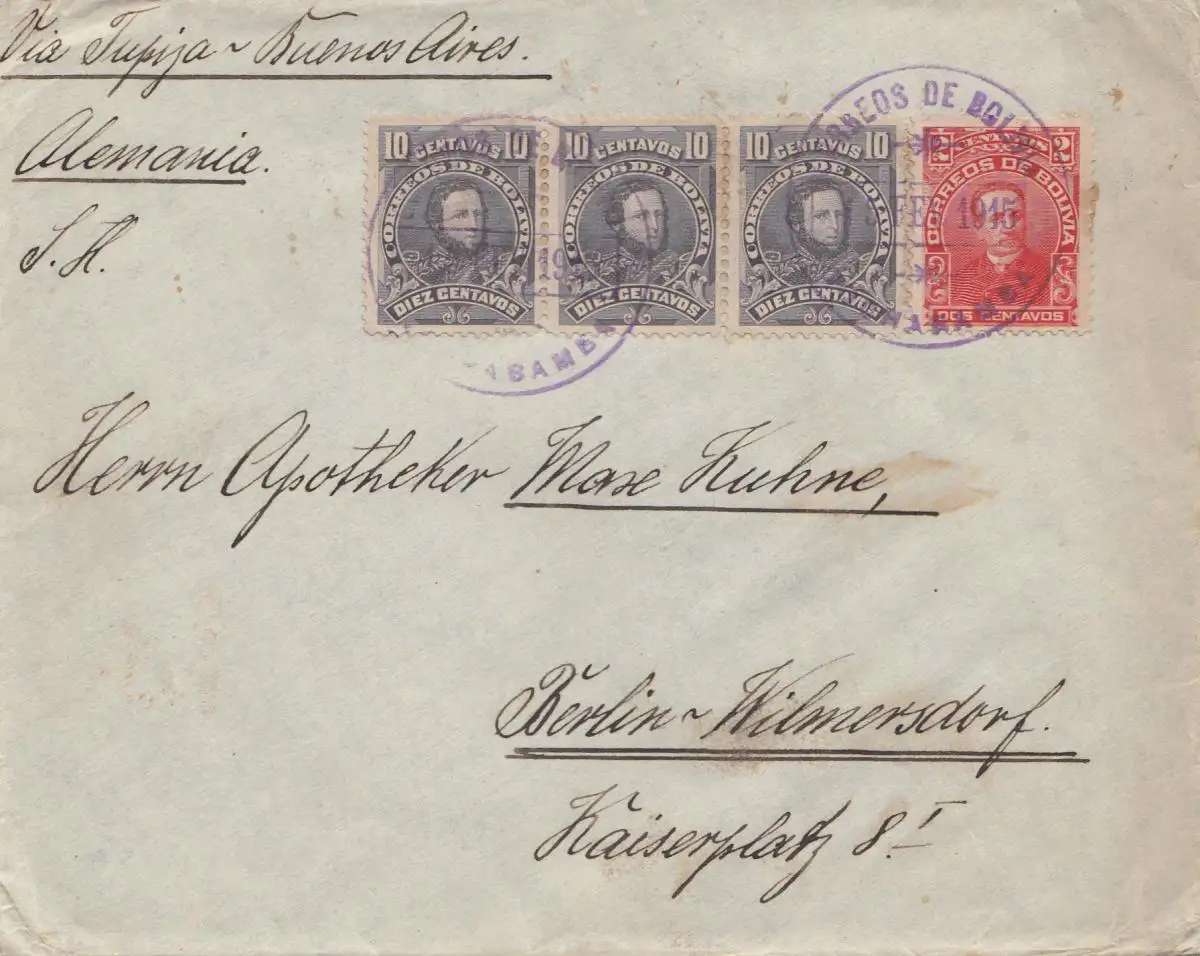 Via Tupiza ~ Buenos Aires.
Alemania.
S. H.
10 CENTAVOS 10
CORREOS DE BOLIVIA
DIEZ CENTAVOS
10 CENTAVOS 10
CORREOS DE BOLIVIA
DIEZ CENTAVOS
10 CENTAVOS 10
CORREOS DE BOLIVIA
DIEZ CENTAVOS
2 CENTAVOS 2
CORREOS DE BOLIVIA
DOS CENTAVOS
CORREOS DE BOLI
FE 1915
Herrn Apotheker Max Kuhne,
Berlin ~ Wilmersdorf.
Kaiserplatz 8 I